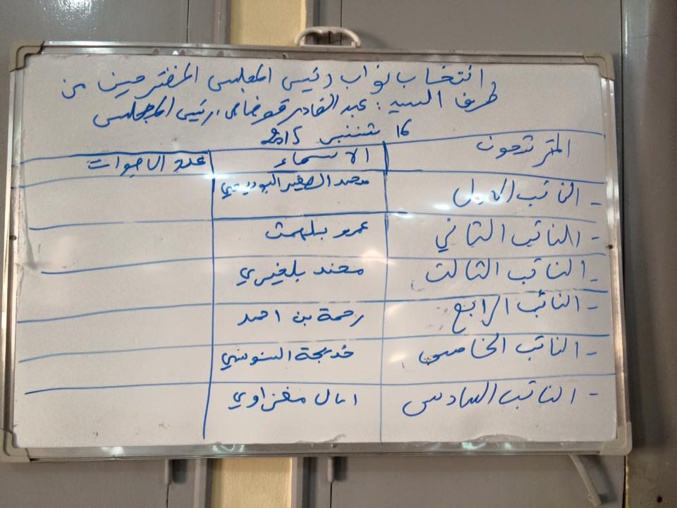 انتخاب نواب رئيس المجلس المقترحين من
طرف السيد: عبد القادر رئيس المجلس
16 شتنبر 2015
المترشحون الأسماء عدد الأصوات
- النائب الأول محمد الصغير
- النائب الثاني عمرو بلهمت
- النائب الثالث محند بلخيري
- النائب الرابع رحمة بن احمد
- النائب الخامس خديجة السنوسي
- النائب السادس امال مغزاوي